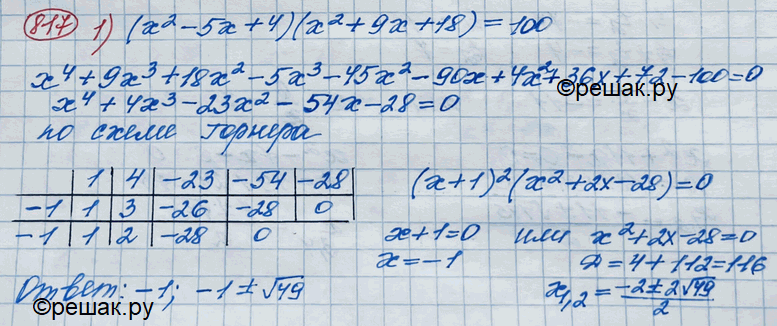 817 1) (x² – 5x + 4)(x² + 9x + 18) = 100
x⁴ + 9x³ + 18x² – 5x³ – 45x² – 90x + 4x² + 36x + 72 – 100 = 0
©reшак.ру
x⁴ + 4x³ – 23x² – 54x – 28 = 0
по схеме Горнера
1 | 4 | –23 | –54 | –28
–1 | 1 | 3 | –26 | –28 | 0
–1 | 1 | 2 | –28 | 0
(x+1)²(x² + 2x – 28) = 0
x+1=0 или x² + 2x – 28 = 0
x = –1
D = 4 + 112 = 116
x₁,₂ = (–2 ± 2√49)/2
Ответ: –1; –1 ± √49
©reшак.ру